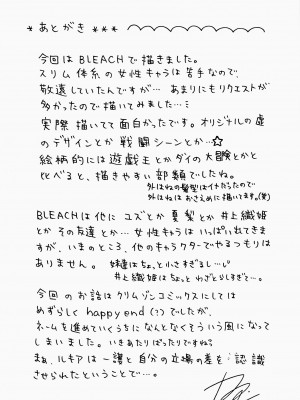 * あとがき ***
今回はBLEACHで描きました。
スリム体系の女性キャラは苦手なので、
敬遠していたんですが… あまりにもリクエストが
多かったので描いてみました…
実際描いてて面白かったです。オリジナルの虚
のデザインとか戦闘シーンとか…☆
絵柄的には遊戯王とかダイの大冒険とかと
比べると、描きやすい部類でしたね。
外はねの髪型はイヤだったので
外はねはおさえめに描いてます。(笑)
BLEACHは他にユズとか夏梨とか井上織姫
とかその友達とか…女性キャラはいっぱいでてきま
すが、いまのところ、他のキャラクターでやるつもりは
ありません。妹達はちょっと小さすぎるし…
井上織姫はちょっとわざとらしすぎて…。
今回のお話はクリムゾンコミックスにしては
めずらしく happy end (?) でしたが、
ネームを進めていくうちになんとなくそういう風になって
しまいました。いきあたりばったりですね?
まぁ、ルキアは一護と自分の立場の差を認識
させられたということで…。